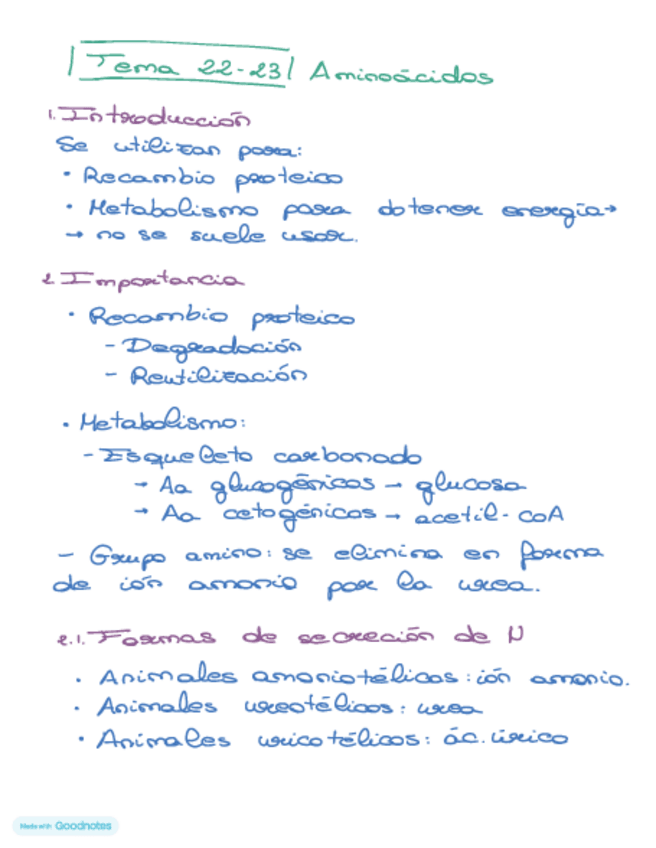 Tema 22-23 Aminoácidos
1. Introducción
Se utilizan para:
• Recambio proteico
• Metabolismo para obtener energía →
→ no se suele usar.
2. Importancia
• Recambio proteico
- Degradación
- Reutilización
• Metabolismo:
- Esqueleto carbonado
→ Aa glucogénicos → glucosa
→ Aa cetogénicos → acetil-CoA
- Grupo amino: se elimina en forma
de ión amonio por la urea.
2.1. Formas de secreción de N
• Animales amoniotélicos: ión amonio.
• Animales ureotélicos: urea
• Animales uricotélicos: ác. úrico
Made with Goodnotes